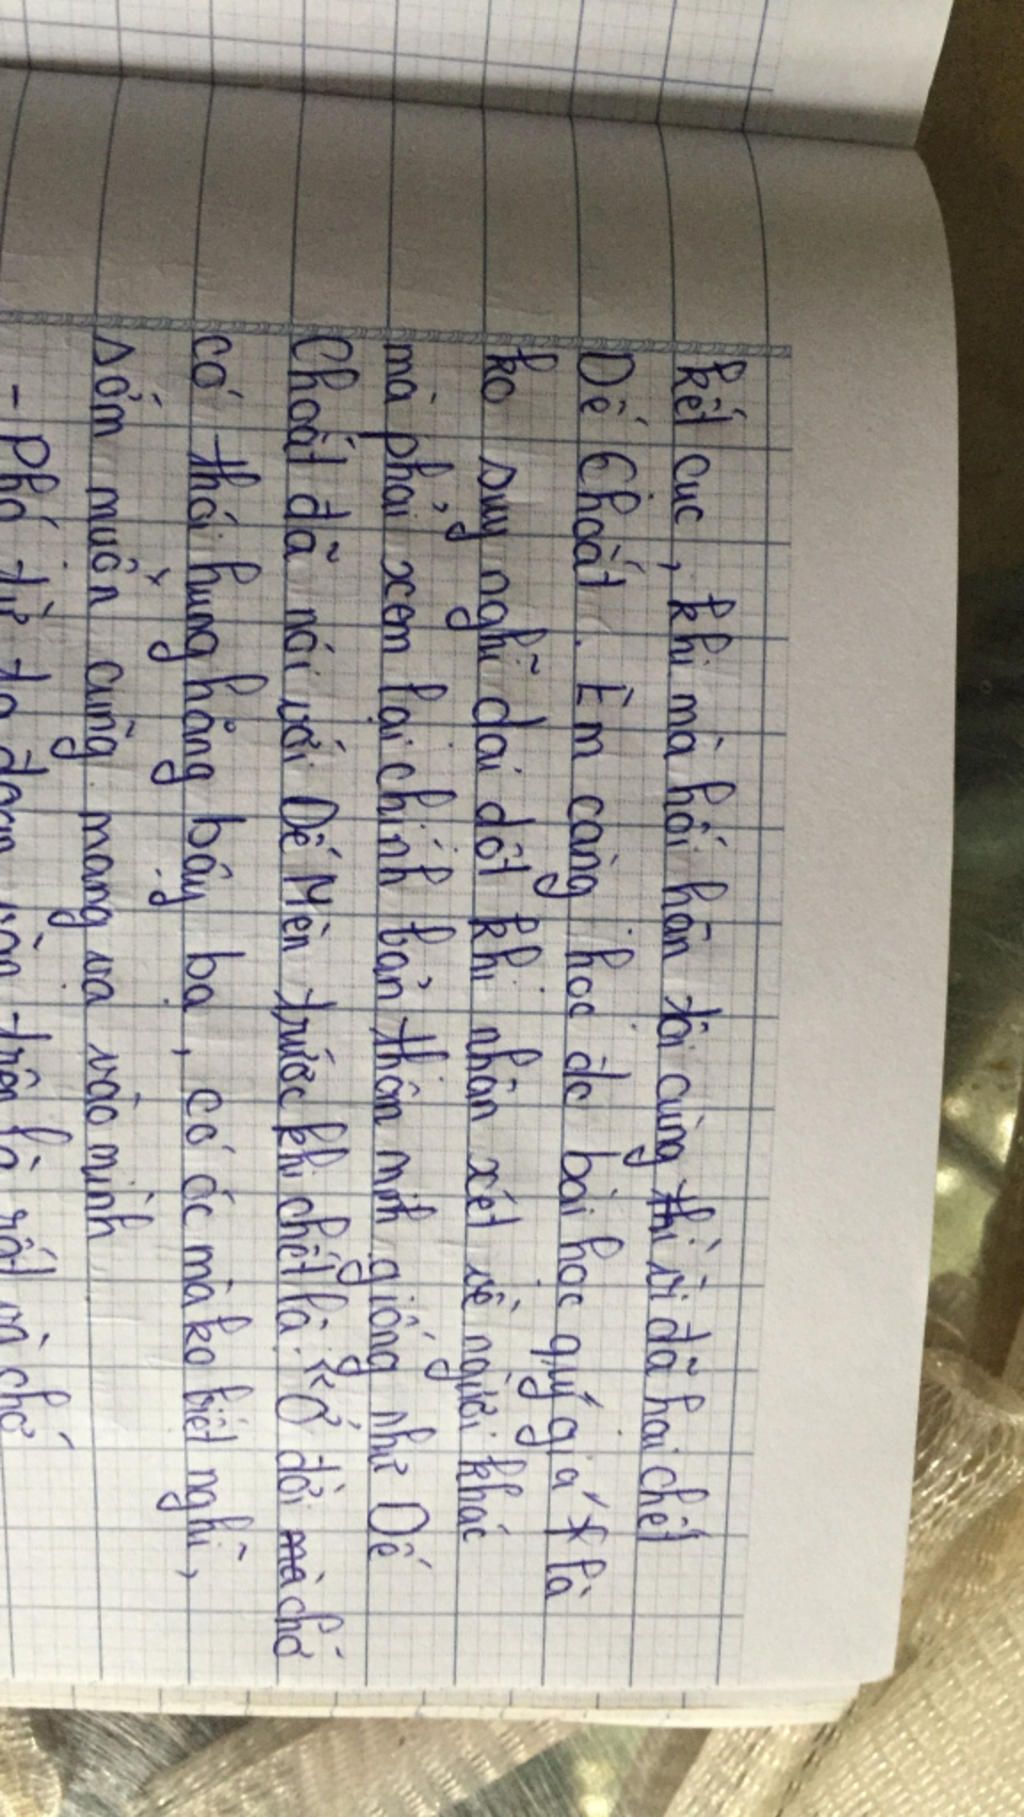 kết cục, khi mà hối hận tôi cũng thì vì đã hại chết
Dế Choắt. Em càng học đc bài học quý giá là
ko suy nghĩ dại dột khi nhận xét về người khác
mà phải xem lại chính bản thân mình giống như Dế
Choắt đã nói với Dế Mèn trước khi chết là: "Ở đời mà chớ
có thói hung hăng bậy bạ, có óc mà ko biết nghĩ,
sớm muộn cũng mang vạ vào mình
- Phó từ đoạn văn trên là rất và chớ